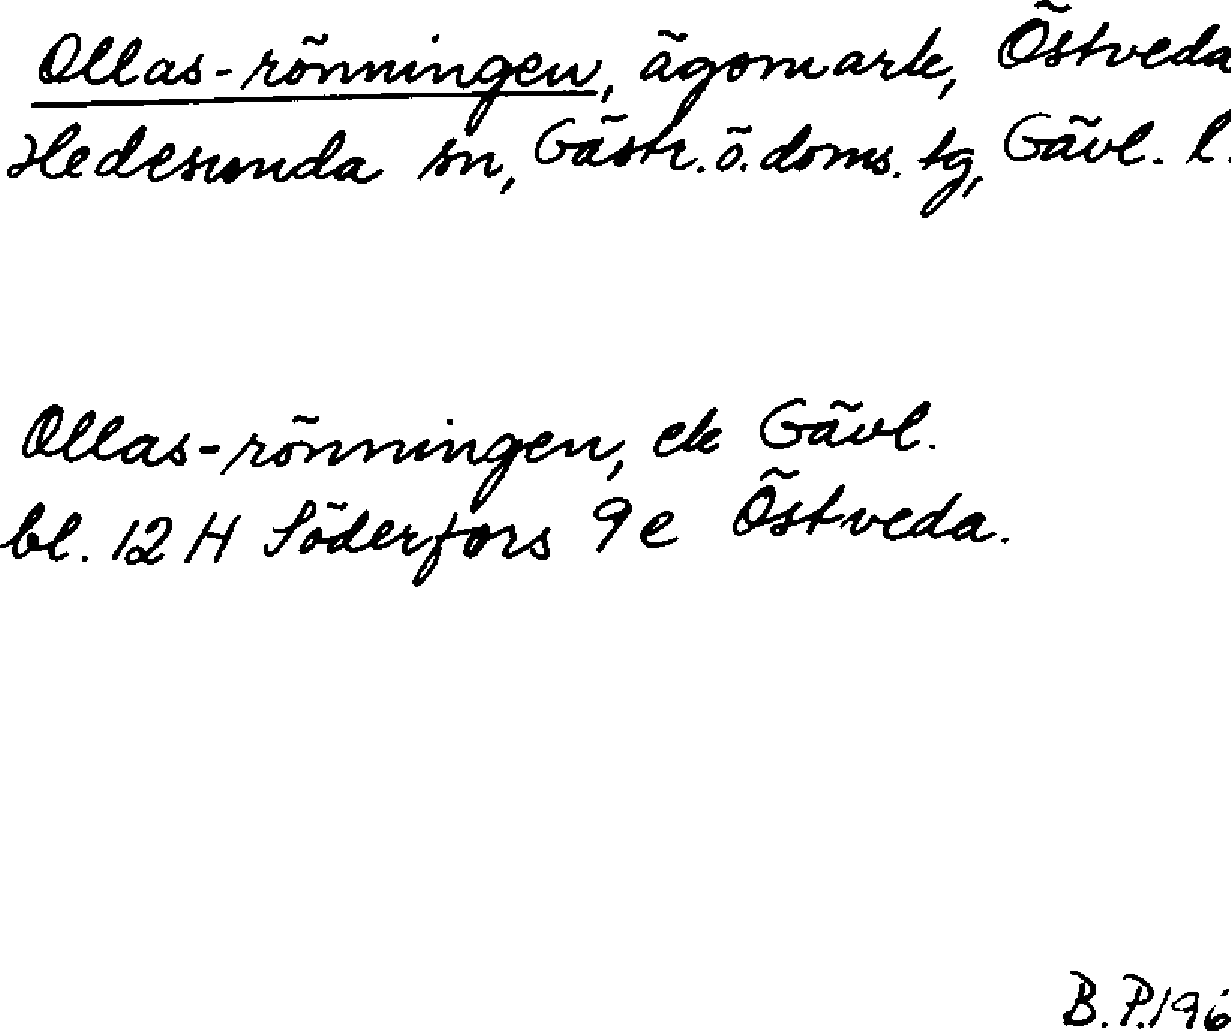 Ollas-rönningen, ägomark, Östveda
Hedesunda sn, Gästr. ö. doms. tg, Gävl. l.
Ollas-rönningen, ek Gävl.
bl. 12 H Söderfors 9 e Östveda.
B. P. 196